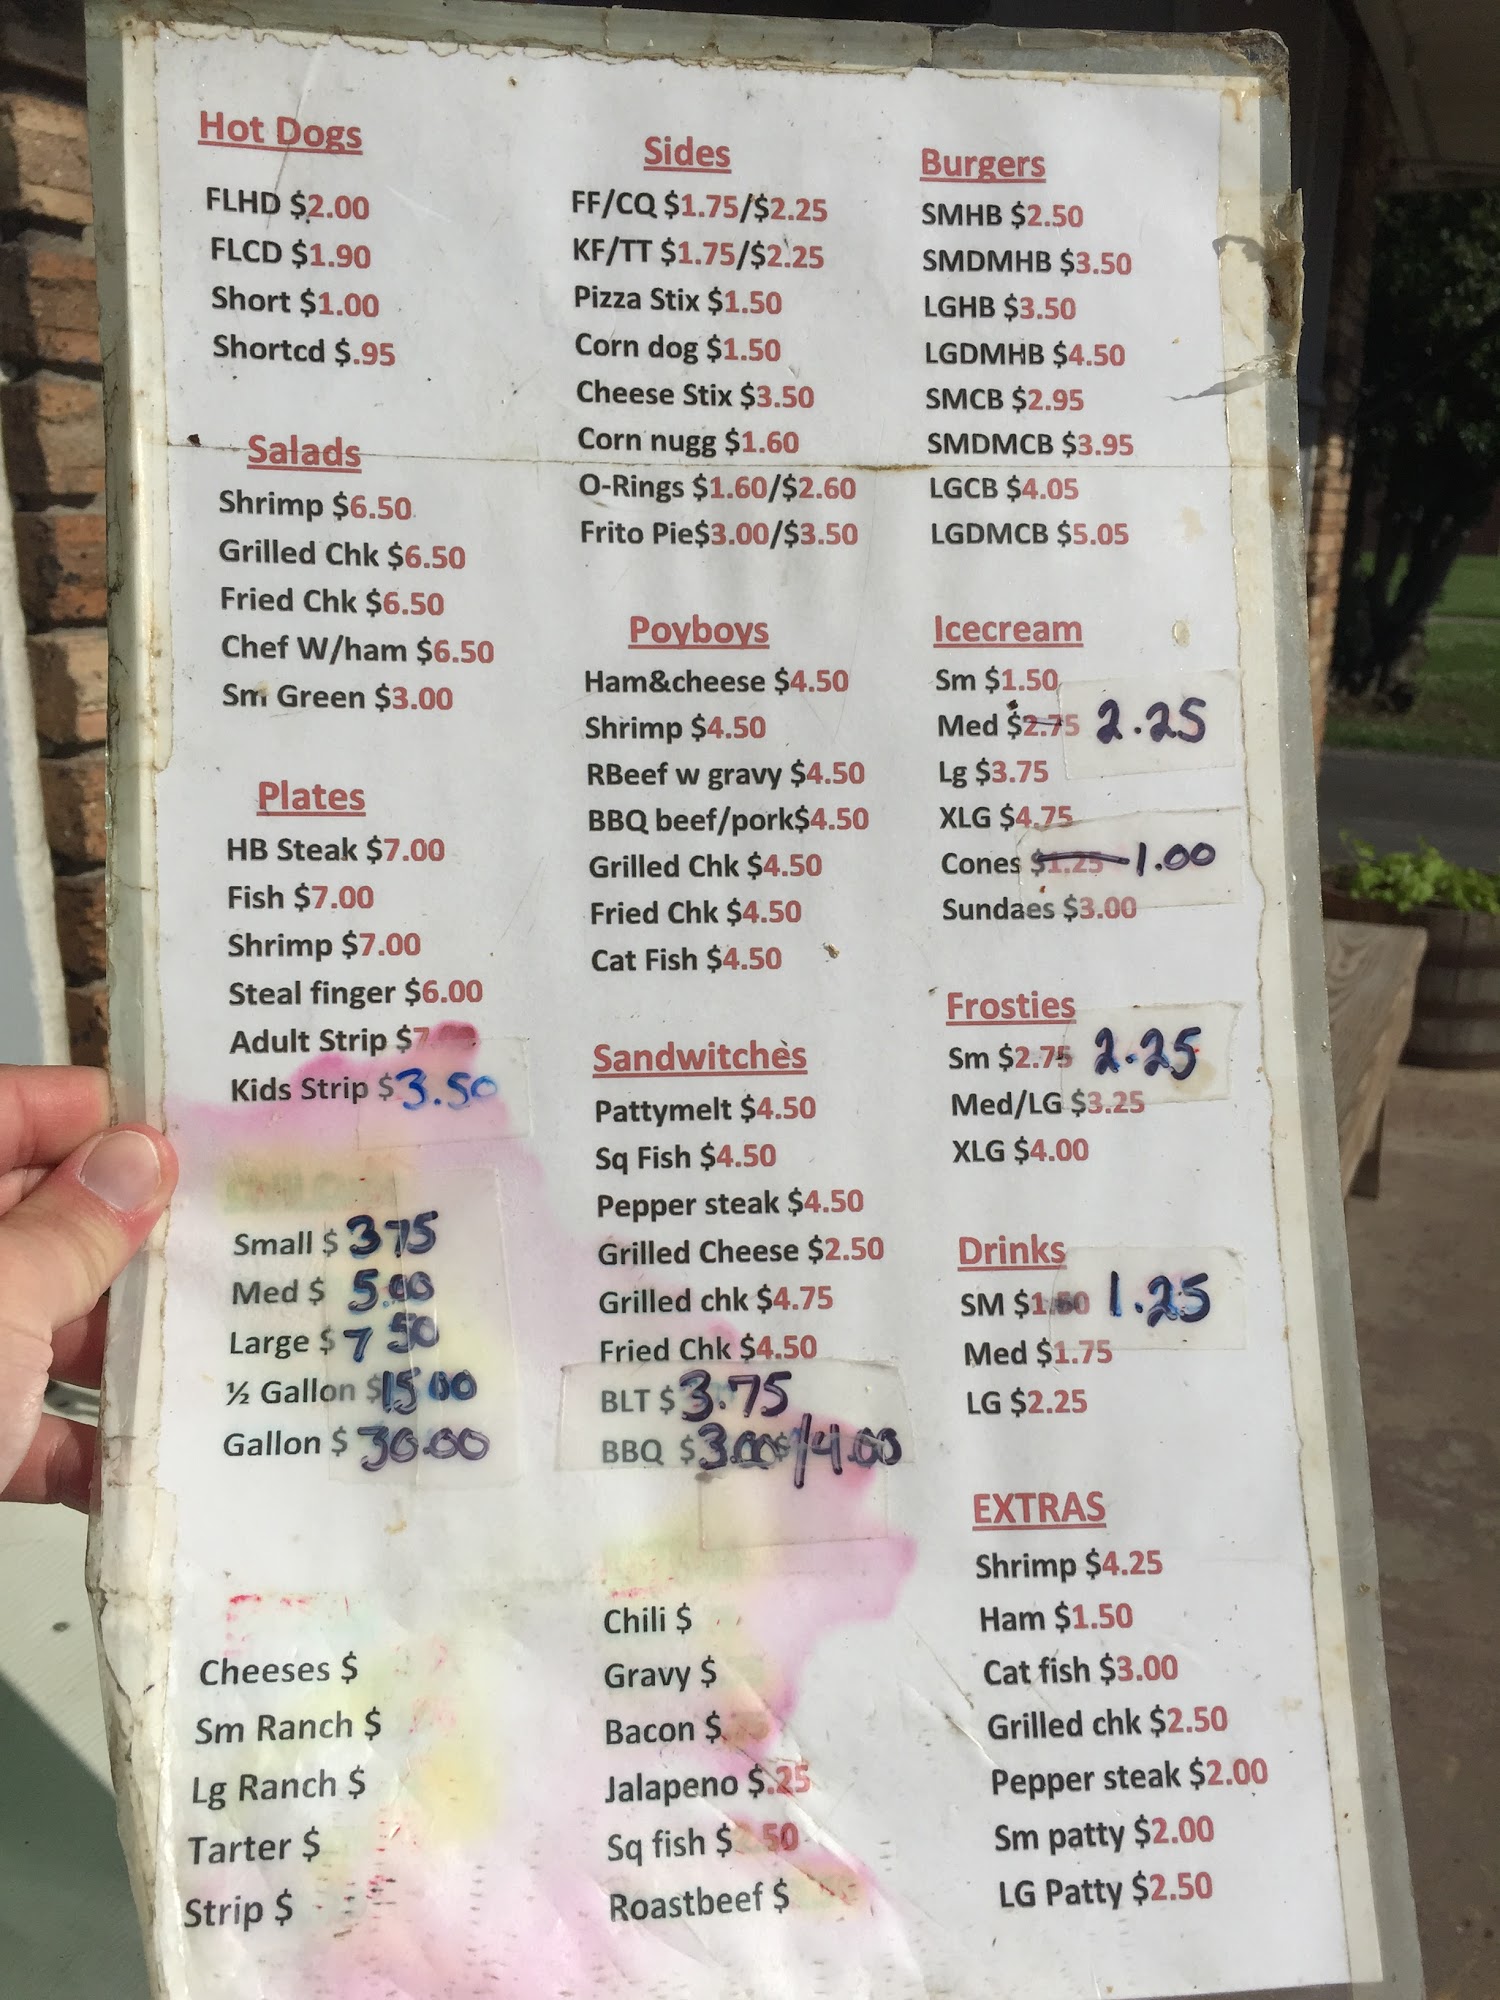 Hot Dogs
FLHD $2.00
FLCD $1.90
Short $1.00
Shortcd $.95
Salads
Shrimp $6.50
Grilled Chk $6.50
Fried Chk $6.50
Chef W/ham $6.50
Sm Green $3.00
Plates
HB Steak $7.00
Fish $7.00
Shrimp $7.00
Steal finger $6.00
Adult Strip $7
Kids Strip $3.50
Small $ 375
Med $ 5.00
Large $ 7 50
½ Gallon $15 00
Gallon $ 30.00
Cheeses $
Sm Ranch $
Lg Ranch $
Tarter $
Strip $
Sides
FF/CQ $1.75/$2.25
KF/TT $1.75/$2.25
Pizza Stix $1.50
Corn dog $1.50
Cheese Stix $3.50
Corn nugg $1.60
O-Rings $1.60/$2.60
Frito Pie$3.00/$3.50
Poyboys
Ham&cheese $4.50
Shrimp $4.50
RBeef w gravy $4.50
BBQ beef/pork$4.50
Grilled Chk $4.50
Fried Chk $4.50
Cat Fish $4.50
Sandwitches
Pattymelt $4.50
Sq Fish $4.50
Pepper steak $4.50
Grilled Cheese $2.50
Grilled chk $4.75
Fried Chk $4.50
BLT $3.75
BBQ $3.00/4.00
Chili $
Gravy $
Bacon $
Jalapeno $.25
Sq fish $2.50
Roastbeef $
Burgers
SMHB $2.50
SMDMHB $3.50
LGHB $3.50
LGDMHB $4.50
SMCB $2.95
SMDMCB $3.95
LGCB $4.05
LGDMCB $5.05
Icecream
Sm $1.50
Med $2.75 2.25
Lg $3.75
XLG $4.75
Cones $1.25 1.00
Sundaes $3.00
Frosties
Sm $2.75 2.25
Med/LG $3.25
XLG $4.00
Drinks
SM $1.50 1.25
Med $1.75
LG $2.25
EXTRAS
Shrimp $4.25
Ham $1.50
Cat fish $3.00
Grilled chk $2.50
Pepper steak $2.00
Sm patty $2.00
LG Patty $2.50